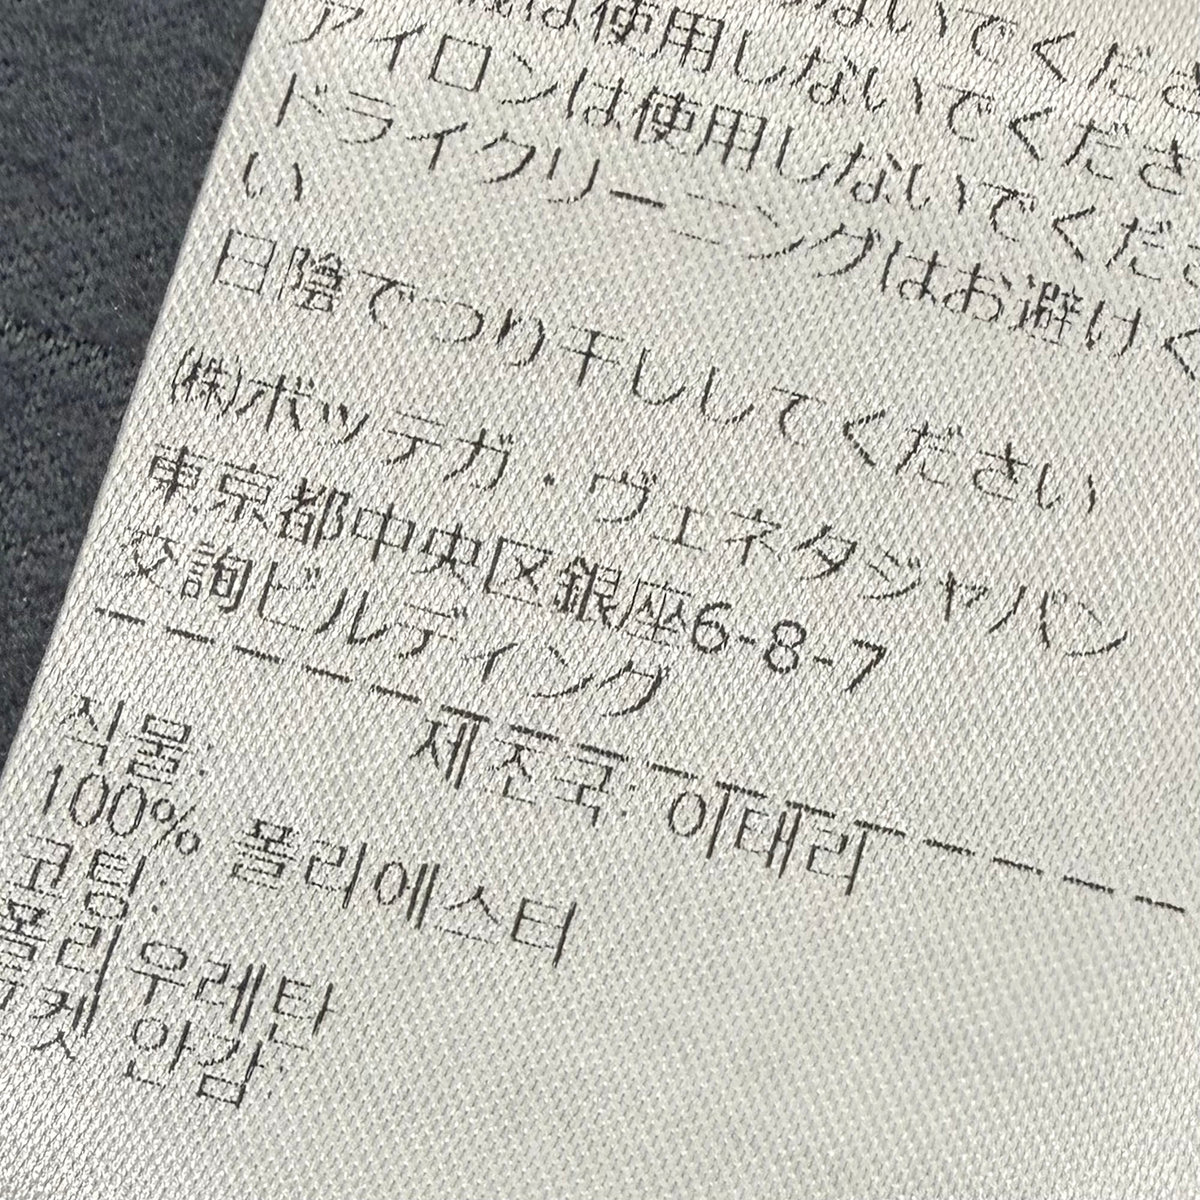 ないでくださ
は使用しないでくださ
アイロンは使用しないでくださ
ドライクリーニングはお避けく
い
日陰でつり干ししてください
(株)ボッテガ・ヴェネタジャパン
東京都中央区銀座6-8-7
交詢ビルディング
제조국: 이태리
직물:
100% 폴리에스터
코팅:
폴리우레탄
켓 안감: